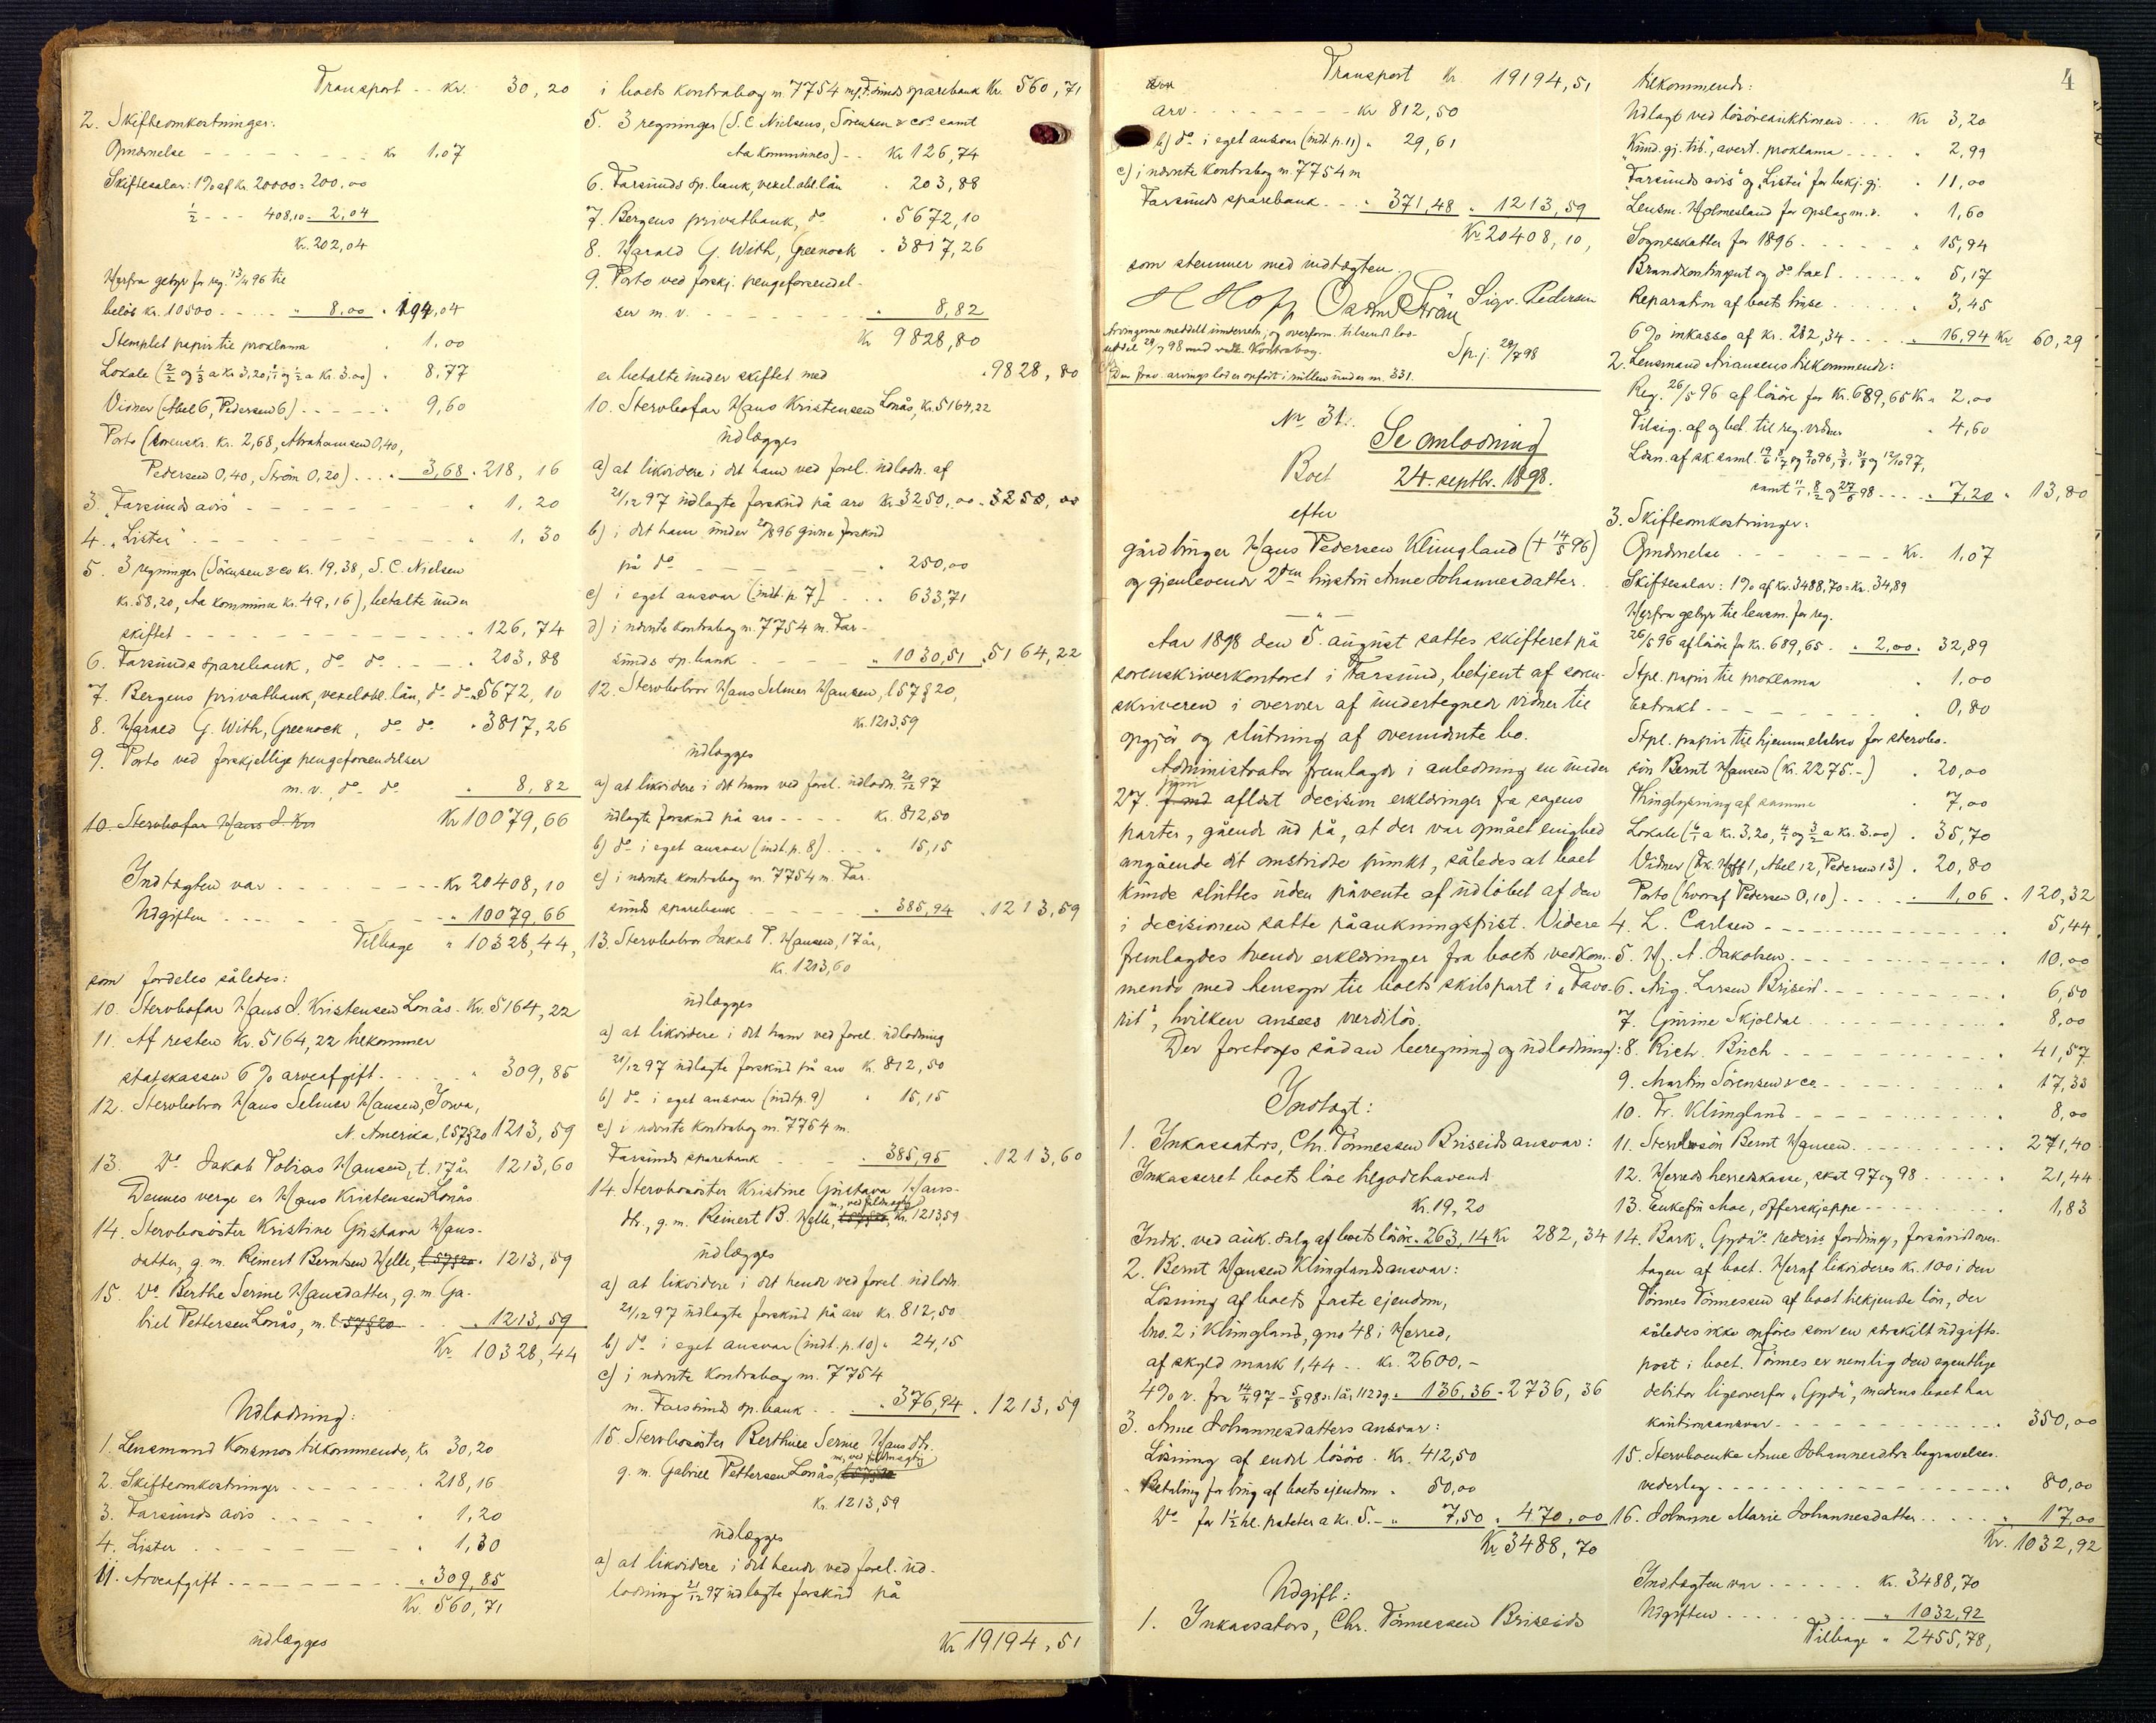 Transport .. kr. 30,20
2. Skifteomkostninger:
Opnævnelse - - - - - - - kr 1,07
Skiftesalær: 1% af kr. 20000 = 200,00
½ - - - 408,10 = 2,04
Kr. 202,04
Herfra gebyr for reg. 13/4 96 til
beløb kr. 10500 - - - - " 8,00 " 194,04
Stemplet papir til proklama " 1,00
Lokale (2/2 og 1/3 a kr 3,20, 1/1 og 1/2 a kr. 3.00) " 8,77
Vidner (Abel 6, Pedersen 6) - - - - - 9,60
Porto (sorenskr. kr. 2,68, Abrahamsen 0,40,
Pedersen 0,40, Strøm 0,20) . . . " 3,68 " 218,16
3. "Farsunds avis" - - - - - - - - " 1,20
4. "Lister" - - - - - - - - - " 1,30
5. 3 regninger (Sörensen & co kr. 19,38, S. C. Nielsen
kr. 58,20, Aa kommune kr. 49,16), betalte under
skiftet - - - - - - - - - - - " 126,74
6. Farsunds sparebank, do do . . - - " 203,88
7. Bergens privatbank, vexelobl. lån, do do " 5672,10
8. Harald G. With, Greenock, do do " 3817,26
9. Porto ved forskjellige pengeforsendelser
m. v., do do " 8,82
10. Stervbofar Hans J. Kri Kr 10079,66
Indtægten var - - - - - - - - Kr 20408,10
Udgiften - - - - - - - - - - " 10079,66
Tilbage " 10328,44,
som fordeles således:
10. Stervbofar Hans J. Kristensen Lonås - Kr. 5164,22
11. Af resten kr. 5164,22 tilkommer
statskassen 6% arveafgift - - - - " 309,85
12. Stervbobror Hans Selmer Hansen, Iowa,
N. Amerika, l 57 § 20 1213,59
13. Do Jakob Tobias Hansen, t. 17 år 1213,60
Dennes verge er Hans Kristensen Lonås
14. Stervbosöster Kristine Gustava Hans-
datter, g. m. Reinert Berntsen Helle, l 57 § 20 " 1213,59
15. Do Berthe Serine Hansdatter, g. m. Ga-
briel Pettersen Lonås, m. l. 57 § 20 . . " 1213,59
Kr. 10328,44
Udlodning:
1. Lensmand Konsmos tilkommende, kr 30,20
2. Skifteomkostninger - - - - - - " 218,16
3. Farsunds avis - - - - - " 1,20
4. Lister - - - - - - - " 1,30
11. Arveafgift - - - - - - - - " 309,85
Kr. 560,71
udlægges
i boets kontrabog nr. 7754 m. Farsunds sparebank kr. 560,71
5. 3 regninger (S. C. Nielsens, Sörensen & co. samt
Aa kommunes) - - kr 126,74
6. Farsunds sp. bank, vexel. obl. lån " 203,88
7. Bergens privatbank, do " 5672,10
8. Harald G. With, Greenock " 3817,26
9. Porto ved forskj. pengeforsendel-
ser m. v. - - - - - - - - " 8,82
Kr 9828,80
er betalte under skiftet med " 9828,80
10. Stervbofar Hans Kristensen Lonås, Kr. 5164,22
udlægges
a) at likvidere i det ham ved forel. udlodn. af
21/12 97 udlagte forskud på arv kr. 3250,00 " 3250,00
b) i det ham under 20/8 96 givne forskud
på do - - - - - - - " 250,00
c) i eget ansvar (indt. p. 7) - . . " 633,71
d) i nævnte kontrabog nr. 7754 m. Far-
sunds sp. bank - - - - " 1030,51 " 5164,22
12. Stervbobror Hans Selmer Hansen, l 57 § 20,
kr. 1213,59
udlægges
a) at likvidere i det ham ved forel. udlodn. 20/12 97
udlagte forskud på arv - - - - kr. 812,50
b) do i eget ansvar (indt. p. 8) - - - " 15,15
c) i nævnte kontrabog nr. 7754 m. Far-
sunds sparebank - - - - - " 385,94 " 1213,59
13. Stervbobror Jakob T. Hansen, 17 år,
Kr. 1213,60
udlægges
a) at likvidere i det ham ved forel. udlodning
21/12 97 udlagte forskud på arv kr. 812,50
b) do i eget ansvar (indt. p. 9) " 15,15
c) i nævnte kontrabog nr. 7754 m.
Farsunds sparebank - - - " 385,95 " 1213,60
14. Stervbosöster Kristine Gustava Hans-
m., ved fuldmægtig
dtr., g. m. Reinert B. Helle, l 57 § 20, kr. 1213,59
udlægges
a) at likvidere i det hende ved forel. udlodn.
21/12 97 udlagte forskud på arv kr. 812,50
b) do i eget ansvar (indt. p. 10) " 24,15
c) i nævnte kontrabog nr. 7754
m. Farsunds sp. bank . . . - " 376,94 " 1213,59
15. Stervbosöster Berthine Serine Hansdtr.
m., ved fuldmægtig
g. m. Gabriel Pettersen Lonås, l 57 § 20
kr. 1213,59
udlægges
a) at likvidere i det hende ved forel. ud-
lodning 21/12 97 udlagte forskud på
Kr 19194,51
Transport kr. 19194,51
arv
arv - - - - - - - - kr 812,50
b) do i eget ansvar (indt. p. 11) " 29,61
c) i nævnte kontrabog nr. 7754 m
Farsunds sparebank - - " 371,48 " 1213,59
Kr. 20408,10,
som stemmer med indtægten.
H Hoff Oskar Strøm Sigv. Pedersen
Arvingerne meddelt underretn. og overform. tilsendt lod-
seddel 29/9 98 med vedk. kontrabog.
Sp. j. 29/7 98
Den frav. arvings lod er opført i rullen under nr. 331.
Nr. 31.
Se omlodning
24. septbr. 1898.
Boet
efter
gårdbruger Hans Pedersen Klungland (+ 14/5 96)
og gjenlevende 2den hustru Anne Johannesdatter.
— " —
Aar 1898 den 5. august sattes skifteret på
sorenskriverkontoret i Farsund, betjent af soren-
skriveren i overvær af undertegnede vidner til
opgjør og slutning af ovennævnte bo.
Administrator fremlagde i anledning en under
juni
27. f. md afsagt decision erklæringer fra sagens
parter, gående ud på, at der var opnået enighed
angående det omstridte punkt, således at boet
kunde sluttes uden påvente af udløbet af den
i decisionen satte påankningsfrist. Videre
fremlagdes tvende erklæringer fra boets vedkom-
mende med hensyn til boets skibspart i "Favo-
rit", hvilken ansees værdiløs.
Der foretoges sådan beregning og udlodning:
Indtægt:
1. Inkassators, Chr. Tönnessen Briseids ansvar:
Inkasseret boets löse tilgodehavende
Kr. 19,20
Indk. ved auk. salg af boets lösöre " 263,14 Kr 282,34
2. Bernt Hansen Klunglands ansvar:
Lösning af boets faste ejendom,
bno. 2 i Klungland, gno 48 i Herred,
af skyld mark 1,44 . . kr. 2600,-
4% r. fra 14/4 97 - 5/8 98 = 1 år 112 dg. " 136,36 " 2736,36
3. Anne Johannesdatters ansvar:
Lösning af endel lösöre . Kr. 412,50
Betaling for brug af boets ejendom " 50,00
Do for 1½ hl. poteter a kr. 5.- " 7,50 " 470,00
Kr. 3488,70
Udgift:
1. Inkassators, Chr. Tönnessen Briseids
4
tilkommende:
Udlagt ved lösöreauktionen . . . . kr 3,20
"Kund. gj. tid.", avert. proklama - - - - " 2,99
"Farsunds avis" og "Lister" for bekj. gj. " 11,00
Lensm. Holmesland for opslag m. v. " 1,60
Sogneskatter for 1896 - - - - - " 15,94
Brandkontingent og do taxt . . . . . " 5,17
Reparation af boets huse - - - - - " 3,45
6% inkasso af kr. 282,34 - - - - " 16,94 Kr 60,29
2. Lensmand Arianseus tilkommende:
Reg. 26/5 96 af lösöre for kr. 689,65 kr. 2,00
Tilsig. af og bet. til reg. vidner " 4,60
samt 11/1, 8/2 og 27/6 98 - - - - " 7,20 " 13,80
3. Skifteomkostninger:
Opnævnelse - - - - - - - Kr. 1,07
Skiftesalær: 1% af kr. 3488,70 = Kr. 34,89
Herfra gebyr til lensm. for reg.
26/5 96 af lösöre for kr. 689,65 . " 2,00 " 32,89
Stpl. papir til proklama " 1,00
Extrakt - - - - - - - - - " 0,80
Stpl. papir til hjemmelsbrev for stervbo-
sön Bernt Hansen (kr. 2275.-) " 20,00
Thinglysning af samme " 7,00
Lokale (6/1 a kr. 3,20, 4/1 og 3/2 a kr. 3.00) . 35,70
Vidner (Fr. Hoff 1, Abel 12, Pedersen 13) . 20,80
Porto (hvoraf Pedersen 0,10) - - - - " 1,06 " 120,32
4. L. Carlsen - - - - - - - - - - - 5,44
5. H. A. Jakobsen - - - - - - - - - - " 10,00
6. Sig. Larsen Briseid - - - - - - - - " 6,50
7. Gurine Skjoldal - - - - - - - - - " 8,00
8. Rich. Buch - - - - - - - - - - - " 41,57
9. Martin Sörensen & co - - - - - - - - " 17,33
10. Fr. Klungland - - - - - - - - - - " 8,00
11. Stervbosön Bernt Hansen - - - - - - - " 271,40
12. Herreds herredskasse, skat 97 og 98 - - - - - " 21,44
13. Enkefru Moe, offerskjeppe - - - - - - - " 1,83
14. Bark "Gyda"s rederis fordring, forsåvidt over-
tagen af boet. Heraf likvideres kr. 100 i den
Tönnes Tönnessen af boet tilkjendte lön, der
således ikke opføres som en særskilt udgifts-
post i boet. Tönnes er nemlig den egentlige
debitor ligeoverfor "Gyda", medens boet har
kautionsansvar - - - - - - - - - - " 350,00
15. Stervboenke Anne Johannesdtrs begravelses-
vederlag - - - - - - - - - - - - " 80,00
16. Johanne Marie Johannesdatter . . . . . " 17,00
Kr. 1032,92
Indtægten var . . . . . . kr. 3488,70
Udgiften - - - - . . . . " 1032,92
Tilbage " 2455,78,